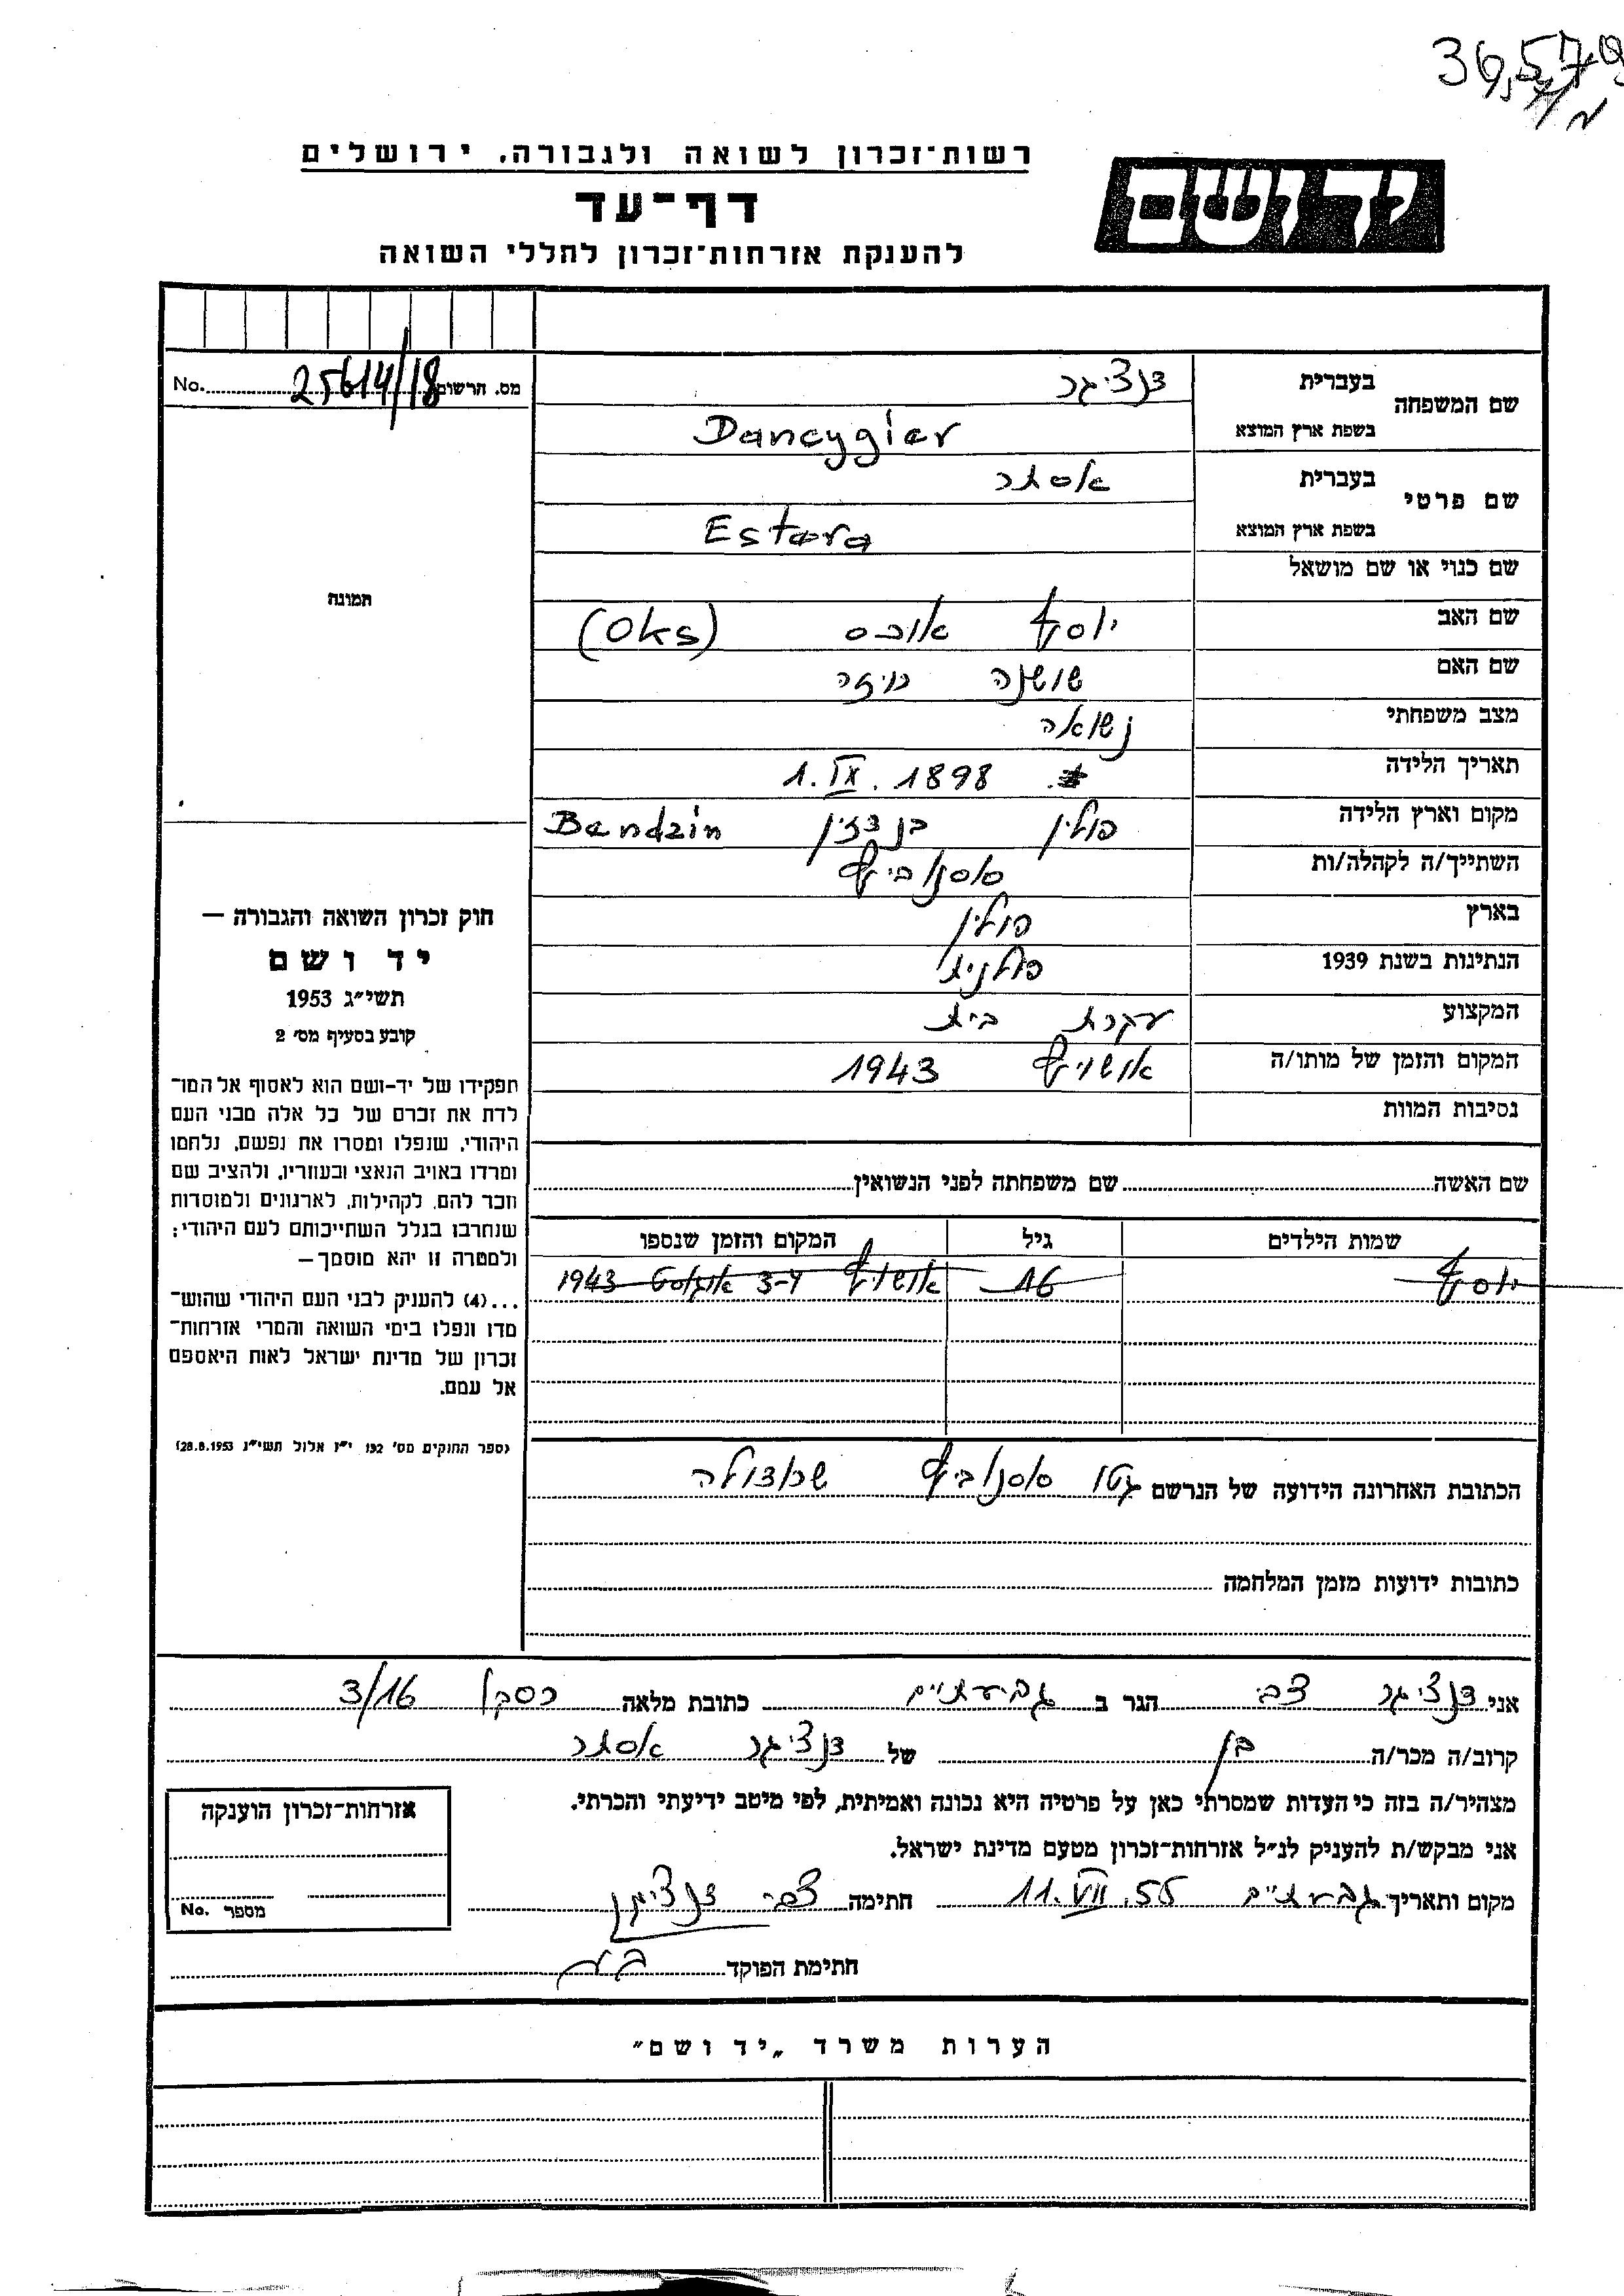 36,579
רשות־זכרון לשואה ולגבורה, ירושלים
ידושם
דף־עד
להענקת אזרחות־זכרון לחללי השואה
שם המשפחה בעברית דנציגר
בשפת ארץ המוצא Dancygier
שם פרטי בעברית אסתר
בשפת ארץ המוצא Estera
שם כנוי או שם מושאל
שם האב יוסף אוכס (Oks)
שם האם שושנה רייזה
מצב משפחתי נשואה
תאריך הלידה 1. IX. 1898
מקום וארץ הלידה פולין בנדזין Bendzin
השתייך/ה לקהלה/ות סוסנוביץ
בארץ פולין
הנתינות בשנת 1939 פולנית
המקצוע עקרת בית
המקום והזמן של מותו/ה אושויץ 1943
נסיבות המוות
מס. הרשום 25614/18 No.
תמונה
חוק זכרון השואה והגבורה —
יד ושם
תשי״ג 1953
קובע בסעיף מס׳ 2
תפקידו של יד-ושם הוא לאסוף אל המו־
לדת את זכרם של כל אלה מבני העם
היהודי, שנפלו ומסרו את נפשם, נלחמו
ומרדו באויב הנאצי ובעוזריו, ולהציב שם
וזכר להם, לקהילות, לארגונים ולמוסדות
שנחרבו בגלל השתייכותם לעם היהודי;
ולמטרה זו יהא מוסמך —
...(4) להעניק לבני העם היהודי שהוש־
מדו ונפלו בימי השואה והמרי אזרחות־
זכרון של מדינת ישראל לאות היאספם
אל עמם.
(ספר החוקים מס׳ 132 י״ז אלול תשי״ג 28.8.1953)
שם האשה שם משפחתה לפני הנשואין
שמות הילדים גיל המקום והזמן שנספו
יוסף 16 אושויץ 3-4 אוגוסט 1943
הכתובת האחרונה הידועה של הנרשם גטו סוסנוביץ שרודולה
כתובות ידועות מזמן המלחמה
אני דנציגר צבי הגר ב גבעתיים כתובת מלאה 3/16
קרוב/ה מכר/ה בן של דנציגר אסתר
מצהיר/ה בזה כי העדות שמסרתי כאן על פרטיה היא נכונה ואמיתית, לפי מיטב ידיעתי והכרתי.
אני מבקש/ת להעניק לנ״ל אזרחות־זכרון מטעם מדינת ישראל.
מקום ותאריך גבעתיים 11. VII. 55 חתימה צבי דנציגר
חתימת הפוקד
אזרחות־זכרון הוענקה
מספר No.
הערות משרד „יד ושם״